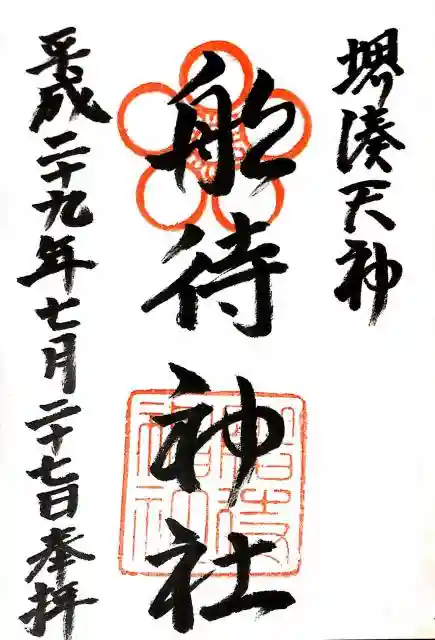 堺湊天神
船待神社
平成二十九年七月二十七日奉拝
船待神社